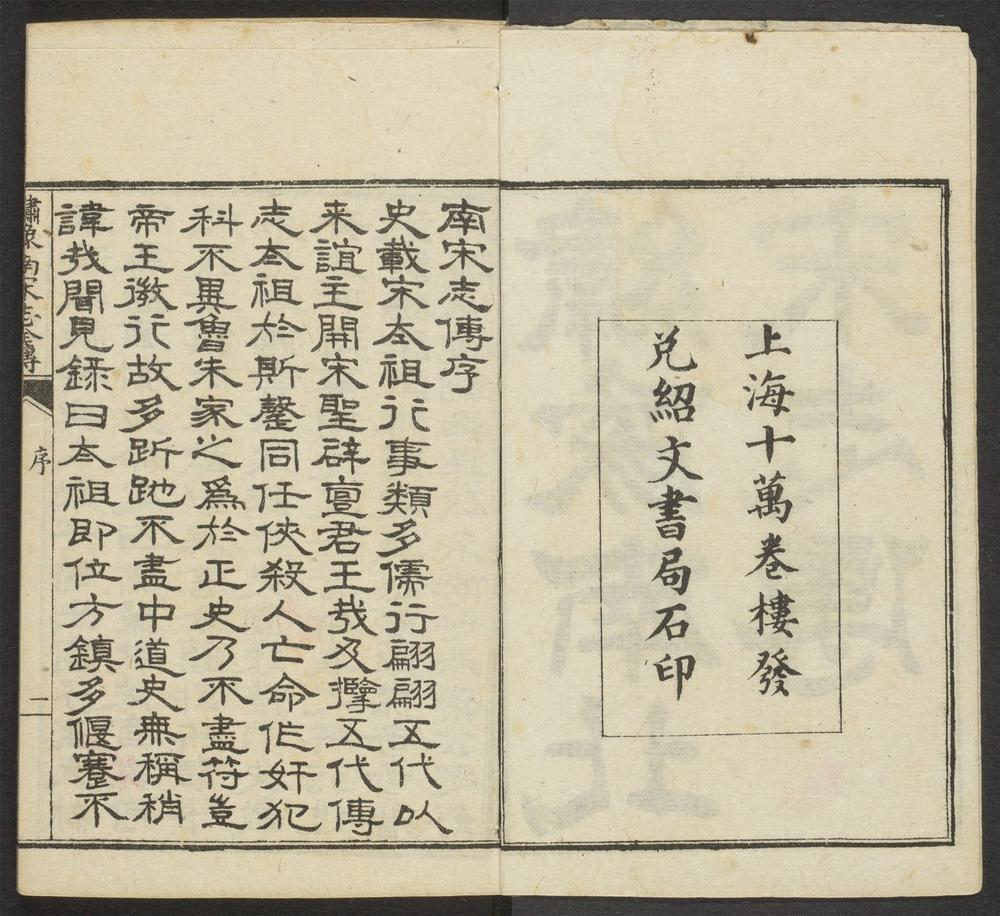 上海十萬卷樓發
兌紹文書局石印
南宋志傳序
史載宋太祖行事類多儒行翩翩五代以
来誼主開宋聖辟亶君王哉及擥五代傳
志太祖於斯鏧同任俠殺人亡命作奸犯
科不異魯朱家之為於正史乃不盡符豈
帝王微行故多跅跑不盡中道史無稱稍
諱哉聞見錄曰太祖即位方鎮多偃蹇不
繡像南宋志全傳
序
二